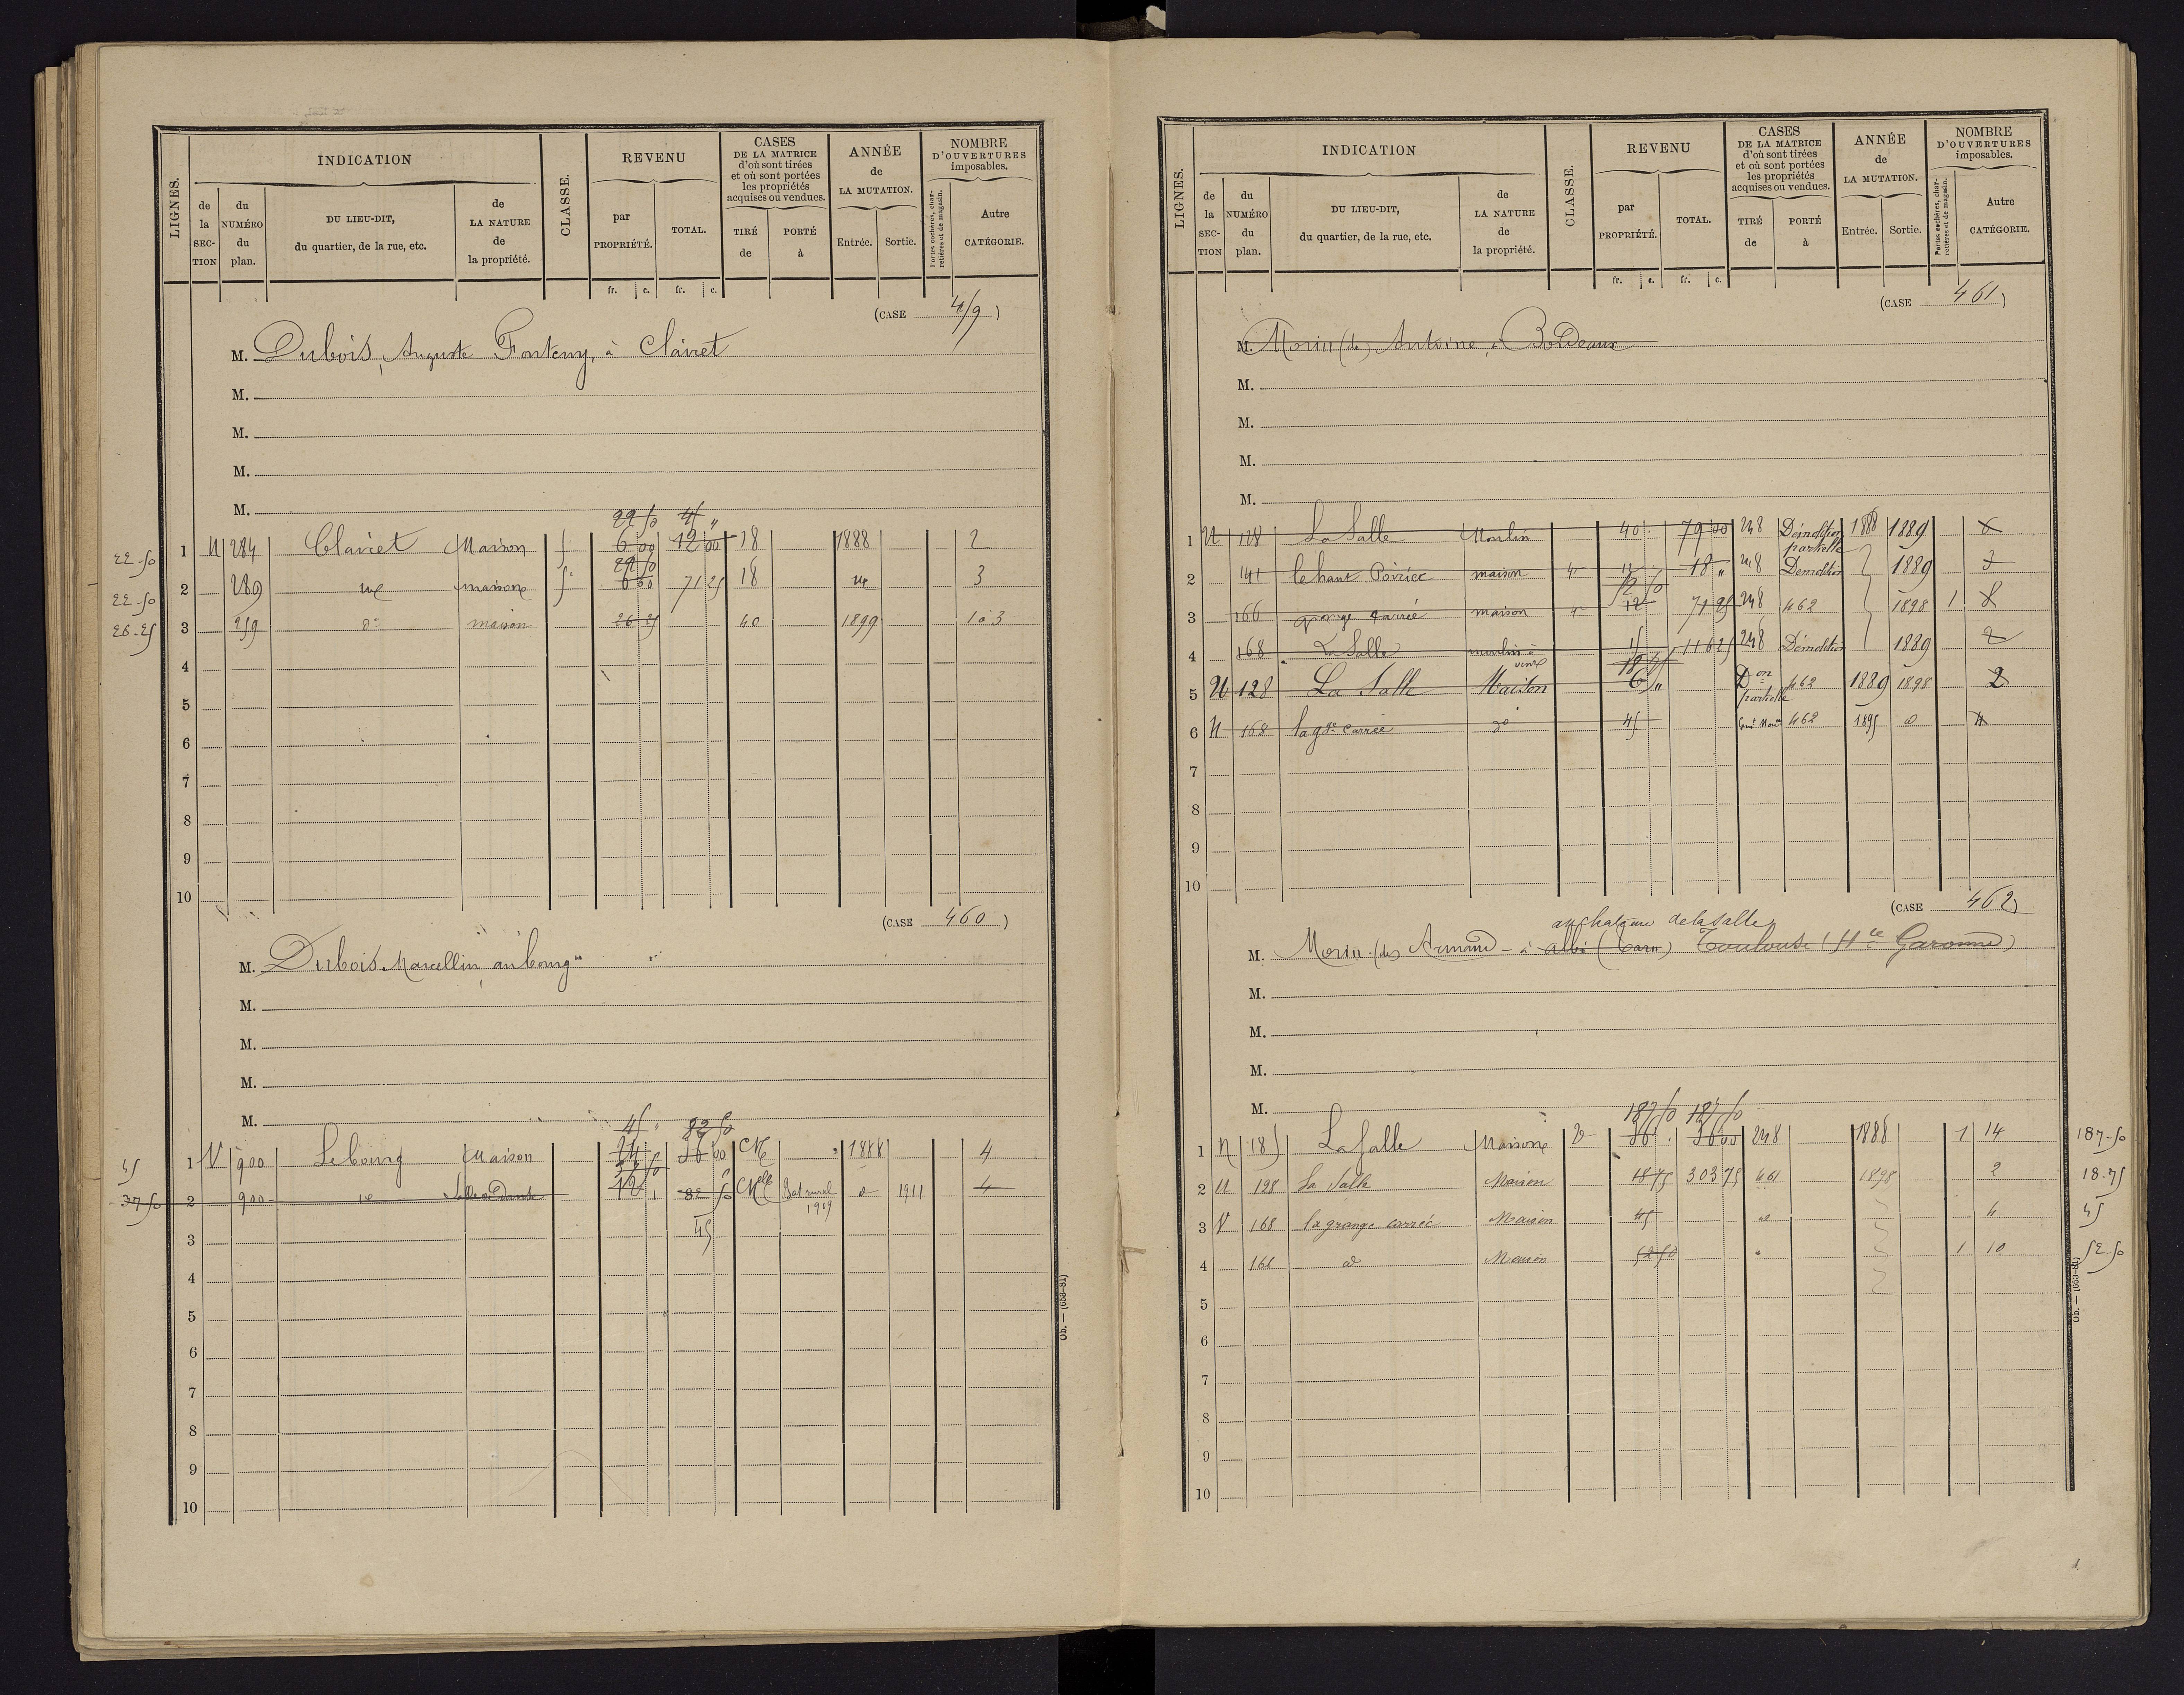 LIGNES.
INDICATION
CLASSE.
REVENU
CASES
DE LA MATRICE
d'où sont tirées
et où sont portées
les propriétés
acquises ou vendues.
ANNÉE
de
LA MUTATION.
NOMBRE
D'OUVERTURES
imposables.
de la SECTION
du NUMÉRO du plan.
DU LIEU-DIT,
du quartier, de la rue, etc.
de LA NATURE de la propriété.
par PROPRIÉTÉ.
TOTAL.
TIRÉ de
PORTÉ à
Entrée.
Sortie.
Portes cochères, charretières et de magasin.
Autre CATÉGORIE.
fr. c. fr. c.
(CASE 459)
M. Dubois, Auguste Fonteny, à Clairet
M.
M.
M.
M.
22 50 45 "
22-50 1 U 284 Clairet Maison 5 6 00 12 00 18 1888 2
22 50
22-50 2 289 maison 5 6 00 71 25 18 3
26-25 3 259 do maison 26 25 40 1899 1 à 3
4
5
6
7
8
9
10
(CASE 460)
M. Dubois Marcellin, au bourg
M.
M.
M.
M.
45 " 82 50
45 1 V 900 Le bourg Maison 24 36 00 1888 4
37 50
37-50 2 900 Salle de danse 12 82 50 Bat rural 1909 1911 4
3 45
4
5
6
7
8
9
10
Ob. — (653-81)
LIGNES.
INDICATION
CLASSE.
REVENU
CASES
DE LA MATRICE
d'où sont tirées
et où sont portées
les propriétés
acquises ou vendues.
ANNÉE
de
LA MUTATION.
NOMBRE
D'OUVERTURES
imposables.
de la SECTION
du NUMÉRO du plan.
DU LIEU-DIT,
du quartier, de la rue, etc.
de LA NATURE de la propriété.
par PROPRIÉTÉ.
TOTAL.
TIRÉ de
PORTÉ à
Entrée.
Sortie.
Portes cochères, charretières et de magasin.
Autre CATÉGORIE.
fr. c. fr. c.
(CASE 461)
M. Morin (de) Antoine, à Bordeaux
M.
M.
M.
M.
1 U 128 La Salle Moulin 40 79 00 248 Démolition partielle 1888 1889 6
2 141 le haut Poirier maison 4 12 18 " 248 Démolition 1889 3
52 50
3 166 grange carrée maison 4 12 71 25 248 462 1898 1 8
4 168 La Salle moulin à vent 15 116 25 248 Démolition 1889 2
18 75
5 U 128 La Salle Maison 6 " Don partielle 462 1889 1898 2
6 U 168 la gge carrée do 45 462 1895 4
7
8
9
10
(CASE 462)
au chateau de la salle
M. Morin (de) Armand - à Albi (Tarn) Toulouse (Hte Garonne)
M.
M.
M.
M.
187 50 187 50
1 185 La Salle Maison 2 36 36 00 248 1888 1 14 187-50
2 U 128 La Salle Maison 18 75 303 75 461 1898 2 18-75
3 V 168 la grange carrée Maison 45 4 45
4 166 Maison 52 50 1 10 52-50
5
6
7
8
9
10
Ob. — (653-81)